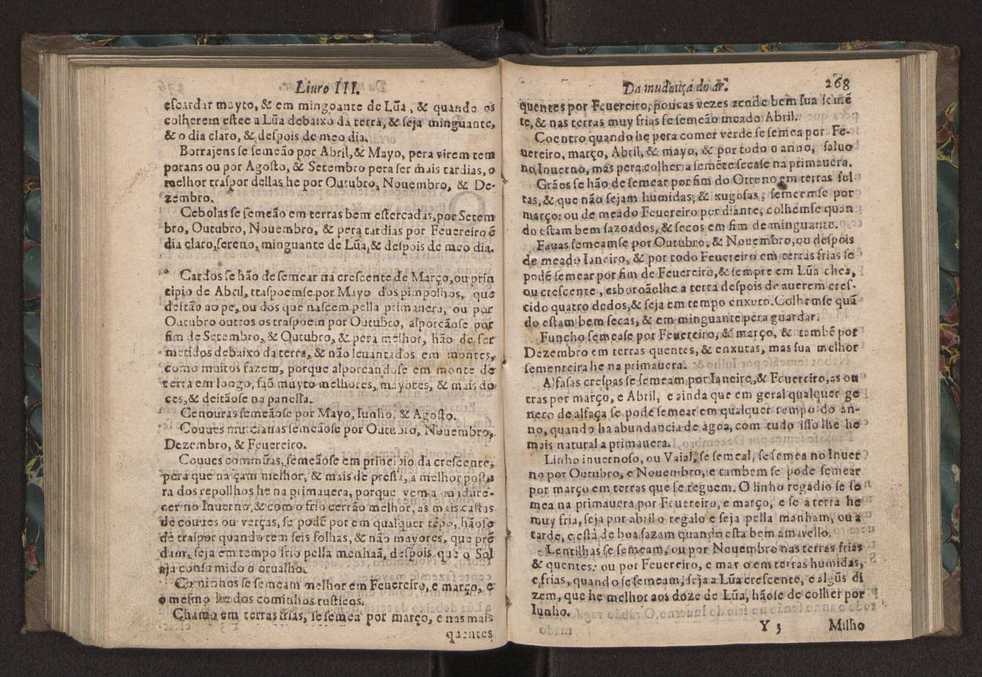 Liuro III.
escardar muyto, & em mingoante de Lũa, & quando os
colherem estee a Lũa debaixo da terra, & seja minguante,
& o dia claro, & despois de meo dia.
Borrajens se semeão por Abril, & Mayo, pera virem tem
porans ou por Agosto, & Setembro pera ser mais tardias, o
melhor traspor dellas he por Outubro, Nouembro, & De-
zembro.
Cebolas se semeão em terras bem estercadas, por Setem
bro, Outubro, Nouembro, & pera tardias por Feuereiro ẽ
dia claro, sereno, minguante de Lũa, & despois de meo dia.
Cardos se hão de semear na crescente de Março, ou prin
cipio de Abril, traspoemse por Mayo dos pimpolhos, que
deitão ao pe, ou dos que nascem pella primauera, ou por
Outubro outros os traspoem por Outubro, alporcãose por
fim de Setembro, & Outubro, & pera milhor, hão de ser
metidos debaixo da terra, & não leuantados em montes,
como muitos fazem, porque alporcandose em monte de
terra em longo, são muyto melhores, mayores, & mais do
ces, & deitãose na panella.
Cenouras semeãose por Mayo, Iunho, & Agosto.
Couues murcianas semeãose por Outubro, Nouembro,
Dezembro, & Feuereiro.
Couues commũas, semeãose em principio da crescente,
pera que naçam milhor, & mais de pressa, a melhor postu
ra dos repolhos he na primauera, porque vem a endure-
cer no Inuerno, & com o frio cerrão melhor, as mais castas
de couues ou verças, se podẽ por em qualquer tẽpo, hãose
de traspor quando tem seis folhas, & não mayores, que prẽ
dam, seja em tempo frio pella menhaã, despois que o Sol
aja consumido o orualho.
Cominhos se semeam melhor em Feuereiro, e março, e
o mesmo he dos cominhos rusticos.
Chamo em terras frias, se semea por março, e nas mais
quentes
Da mudança do ar. 268
quentes por Feuereiro, poucas vezes zende bem sua semẽ
te, & nas terras muy frias se semeão meado Abril.
Coentro quando he pera comer verde se semea por Fe-
uereiro, março, Abril, & mayo, & por todo o anno, saluo
no Inuerno, mas pera colher a semẽte secase na primauera.
Grãos se hão de semear por fim do Ottono em terras sol
tas, & que não sejam humidas, & xugosas, semeamse por
março, ou de meado Feuereiro por diante, colhemse quan
do estam bem sazoados, & secos em fim de minguante.
Fauas semeamse por Outubro, & Nouembro, ou despois
de meado Ianeiro, & por todo Feuereiro em terras frias se
podẽ semear por fim de Feuereiro, & sempre em Lũa chea,
ou crescente, esboroãolhe a terra despois de auerem cres-
cido quatro dedos, & seja em tempo enxuto. Colhemse quã
do estam bem secas, & em minguante pera guardar.
Funcho semease por Feuereiro, & março, & tambẽ por
Dezembro em terras quentes, & enxutas, mas sua melhor
sementeira he na primauera.
Alfasas crespas se semeam por Ianeiro, & Feuereiro, as ou
tras por março, e Abril, e ainda que em geral qualquer ge
nero de alfaça se pode semear em qualquer tempo do an-
no, quando ha abundancia de agoa, com tudo isso lhe he
mais natural a primauera.
Linho inuernoso, ou Vaial, se semeal, se semea no Inuer
no por Outubro, e Nouembro, e tambem se pode semear
por março em terras que se reguem. O linho regadio se se
mea na primauera por Feuereiro, e março, e se a terra he
muy fria, seja por abril o regalo e seja pella manham, ou a
tarde, e está de boa sazam quando esta bem amarello.
Lentilhas se semeam, ou por Nouembro nas terras frias
& quentes, ou por Feuereiro, e março em terras humidas,
e frias, quando se semeam, seja a Lũa crescente, e algũs di
zem, que he melhor aos doze de Lũa, hãose de colher por
Iunho.
Y 3 Milho